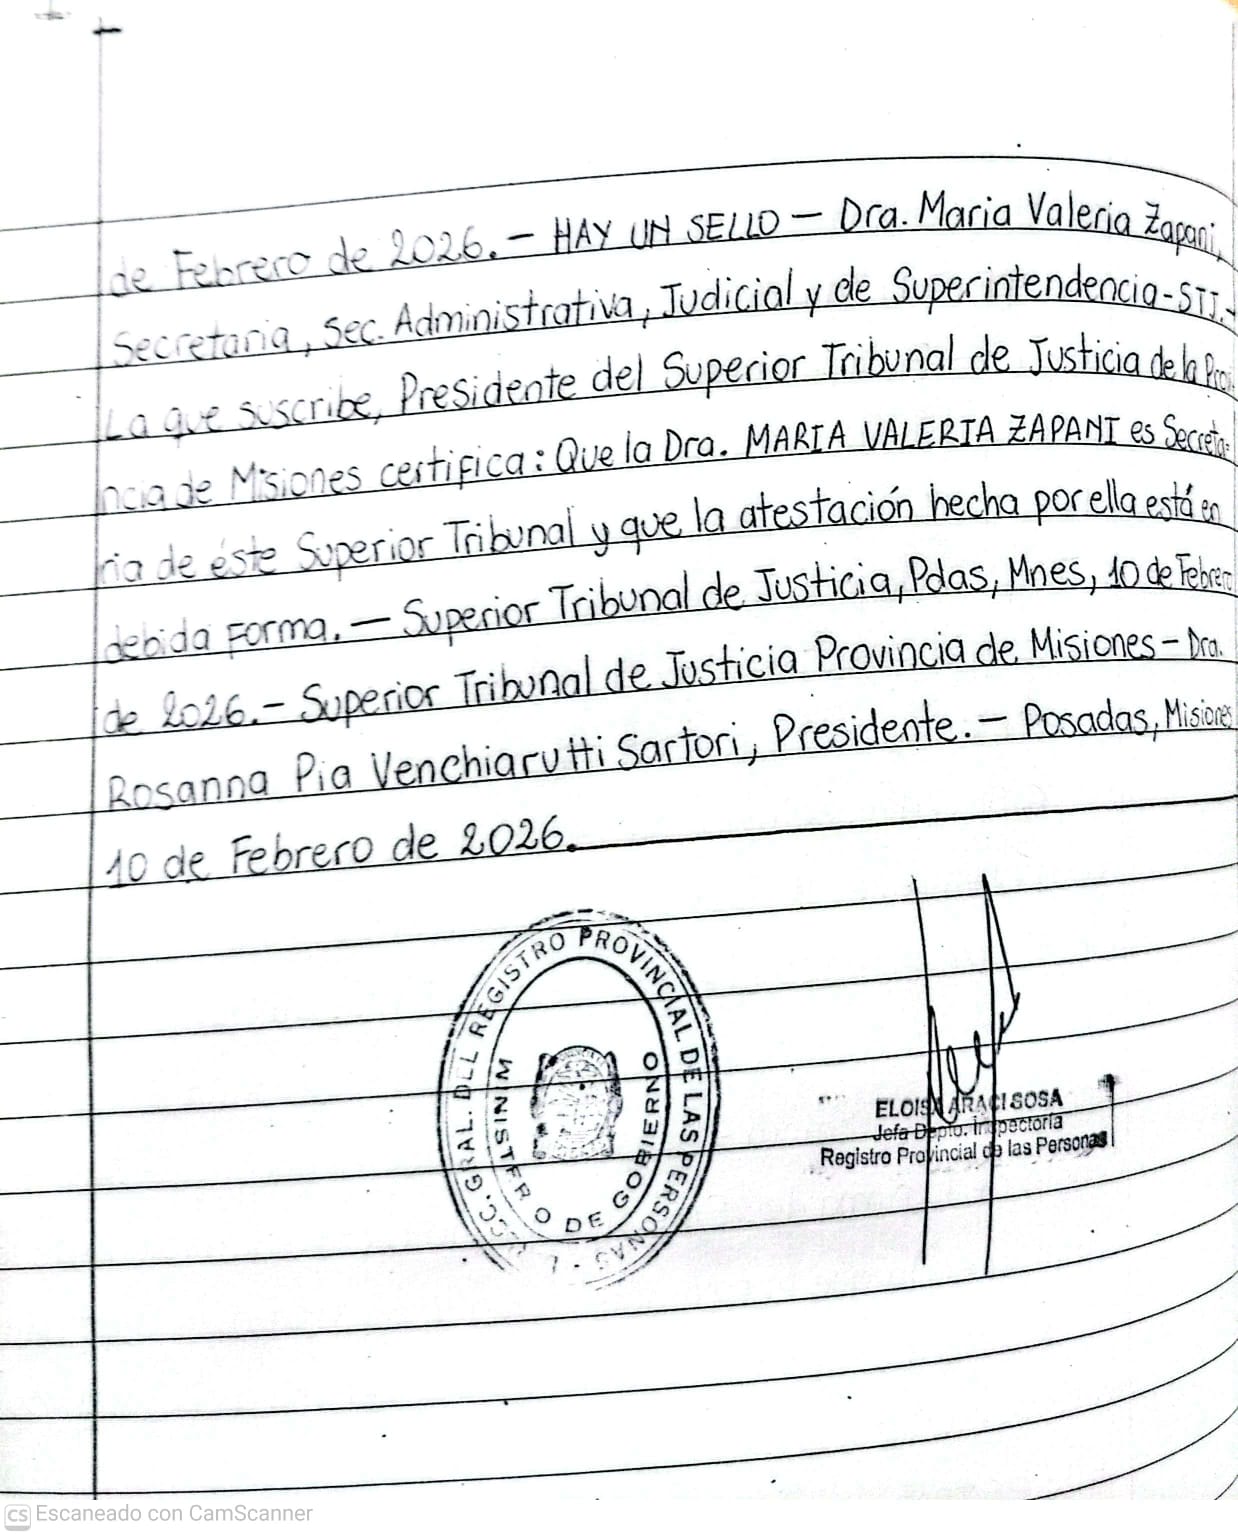 de Febrero de 2026.- HAY UN SELLO - Dra. Maria Valeria Zapani,
Secretaria, Sec. Administrativa, Judicial y de Superintendencia-STJ.-
La que suscribe, Presidente del Superior Tribunal de Justicia de la Provi
ncia de Misiones certifica: Que la Dra. MARIA VALERIA ZAPANI es Secreta-
ria de éste Superior Tribunal y que la atestación hecha por ella está en
debida forma. - Superior Tribunal de Justicia, Pdas, Mnes, 10 de Febrero
de 2026.- Superior Tribunal de Justicia Provincia de Misiones - Dra.
Rosanna Pia Venchiarutti Sartori, Presidente. - Posadas, Misiones
10 de Febrero de 2026.
GRAL. DEL REGISTRO PROVINCIAL DE LAS PERSONAS
MINISTERIO DE GOBIERNO
ELOISA ARACI SOSA
Jefa Depto. Inspectoría
Registro Provincial de las Personas
CS Escaneado con CamScanner